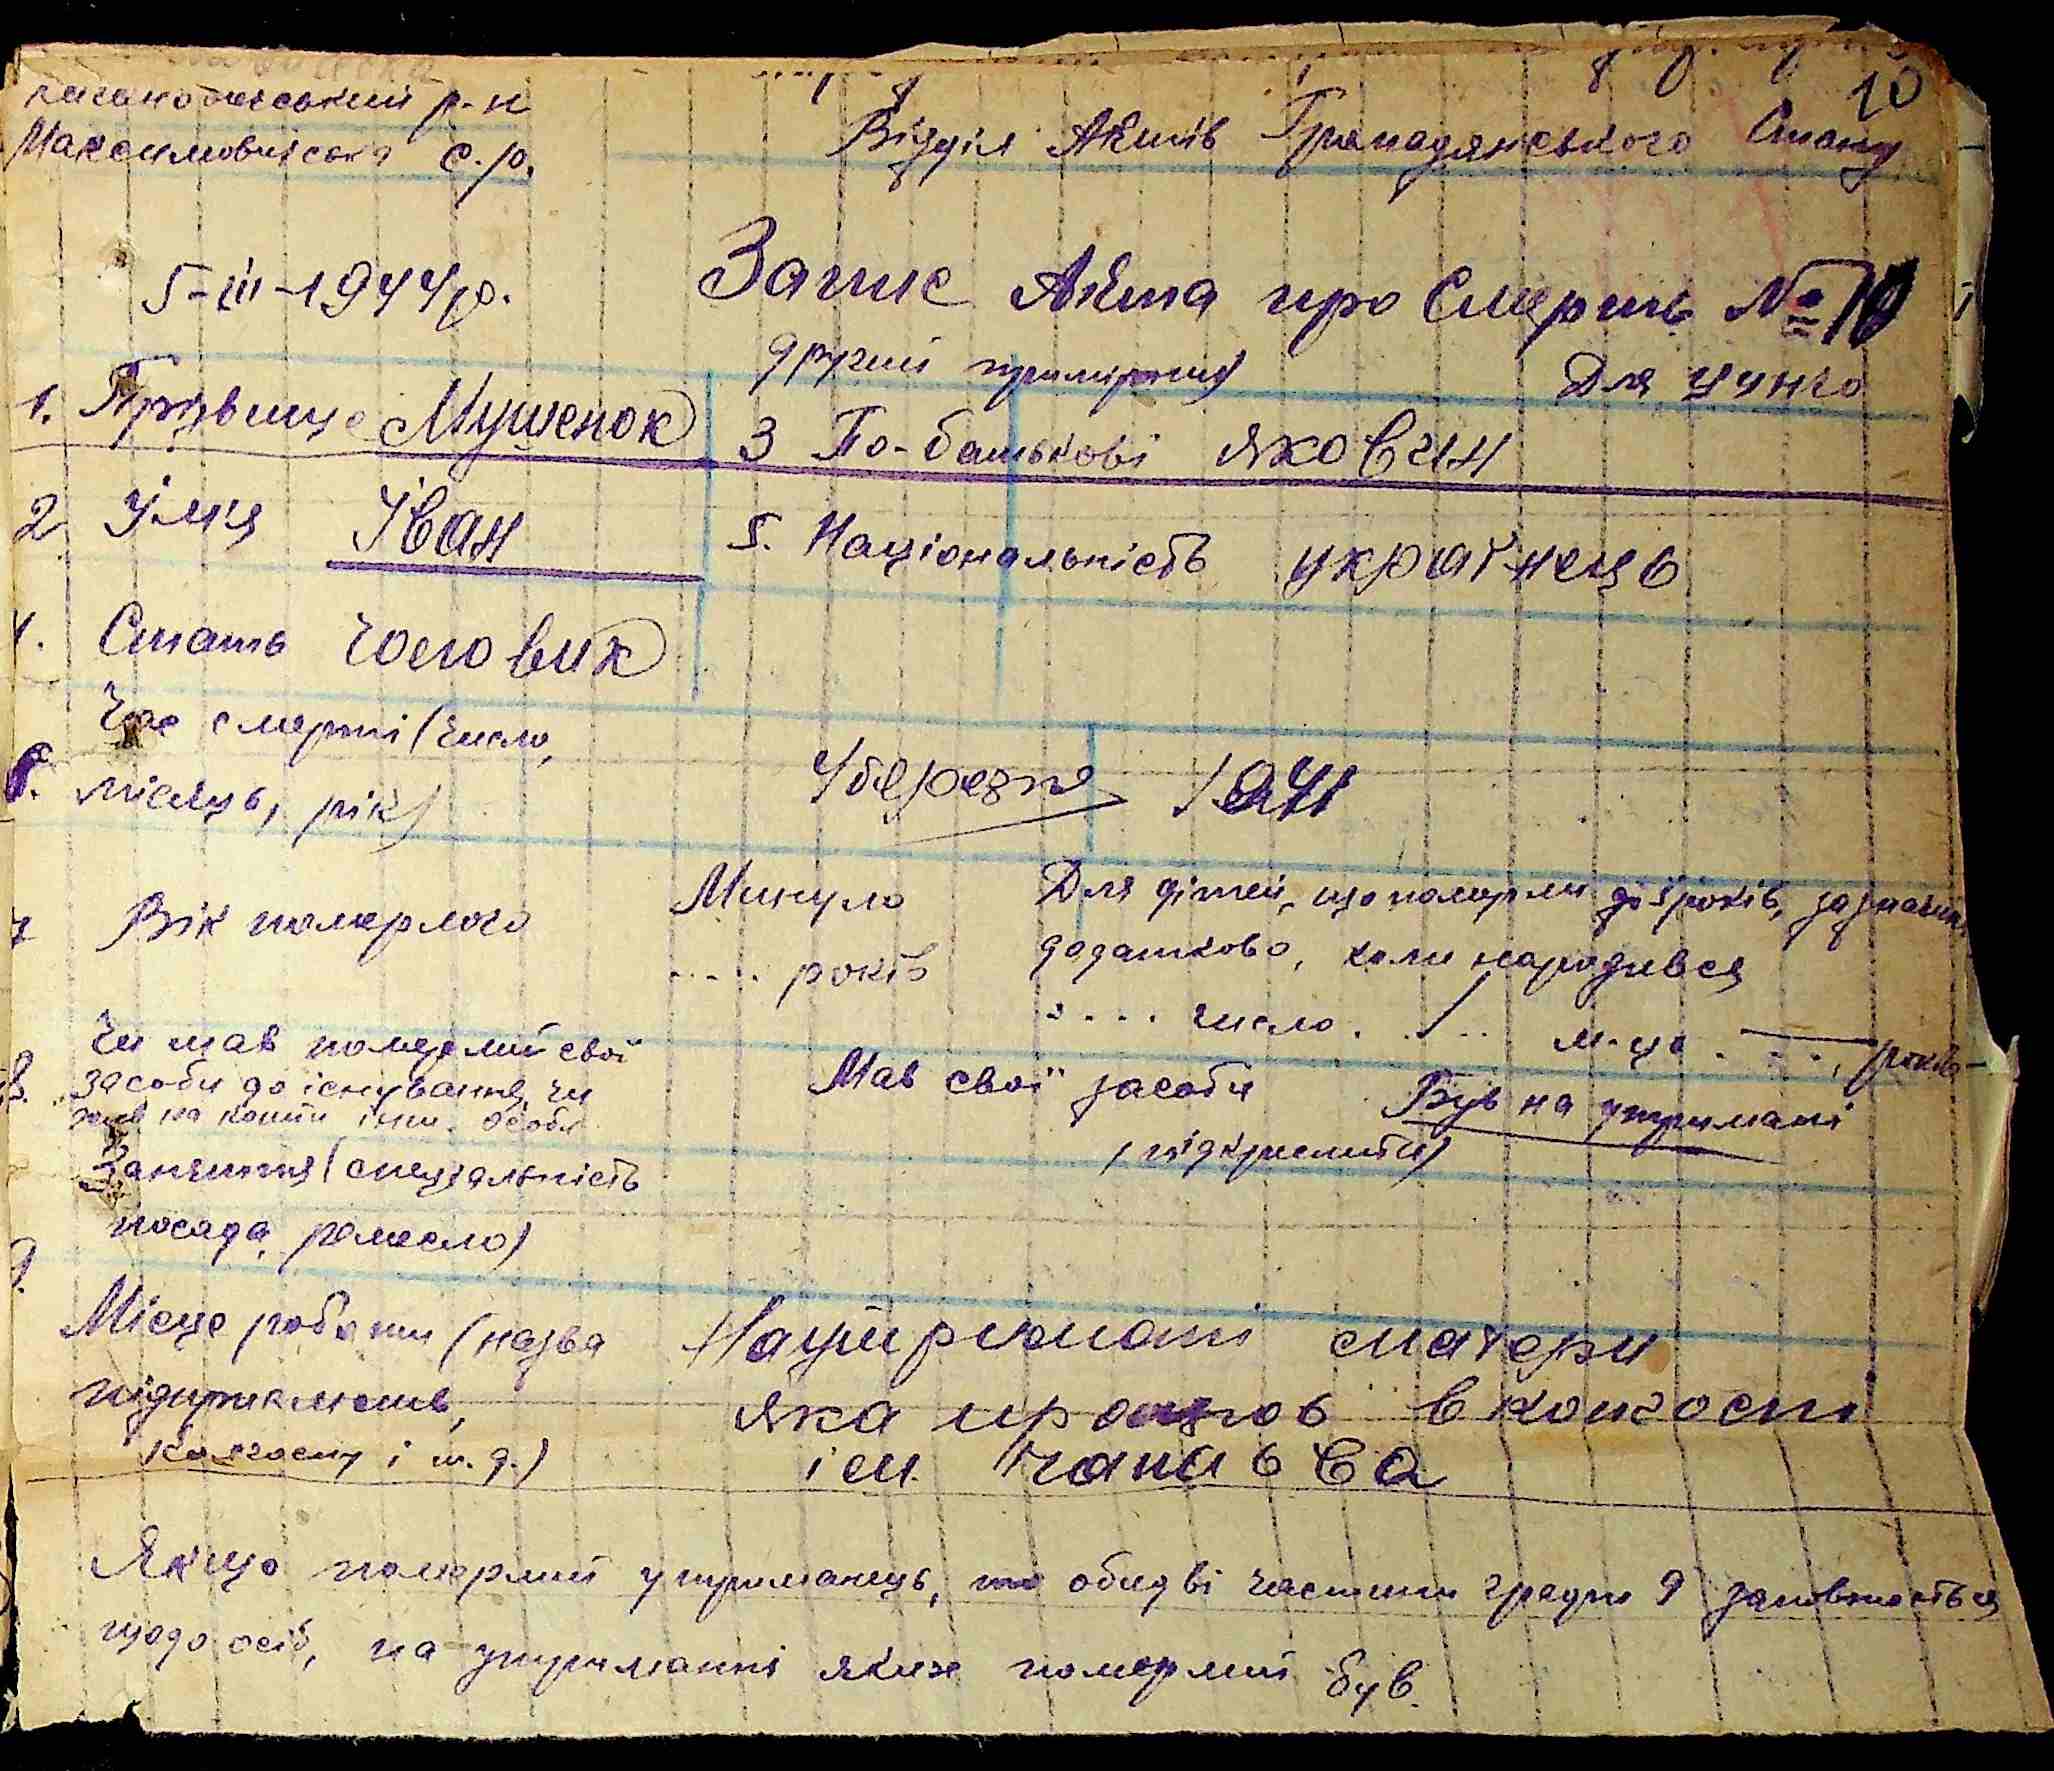 10
Кагановичський р-н
Відділ Актів Громадянського Стану
Максимовицська с.р.
5-III-1944 р.
Запис Акта про Смерть № 10
другий примірник
Для ЦУНГО
1. Прізвище Мушенок
3 По-батькові Якович
2 Ім'я Іван
5. Національність українець
4. Стать Чоловік
6. Час смерті (число, місяць, рік)
4 березня 1944
7 Вік померлого
Минуло
.... років
Для дітей, що померли до 5 років, зазначити
додатково, коли народився
.... число. 1.. м-ць. — .... років
8. Чи мав померлий свої
засоби до існування, чи
жив на кошти інш. особи
Мав свої засоби
Був на утримані
(підкреслити)
9. Заняття (спеціальність
посада, ремесло)
Місце роботи (назва
підприємств,
колгоспу і т.д.)
На утримані матери
яка працює в колгоспі
ім. Чапаєва
Якщо померлий утриманець, то обидві частини графи 9 заповнюється
щодо осіб, на утриманні яких померлий був.